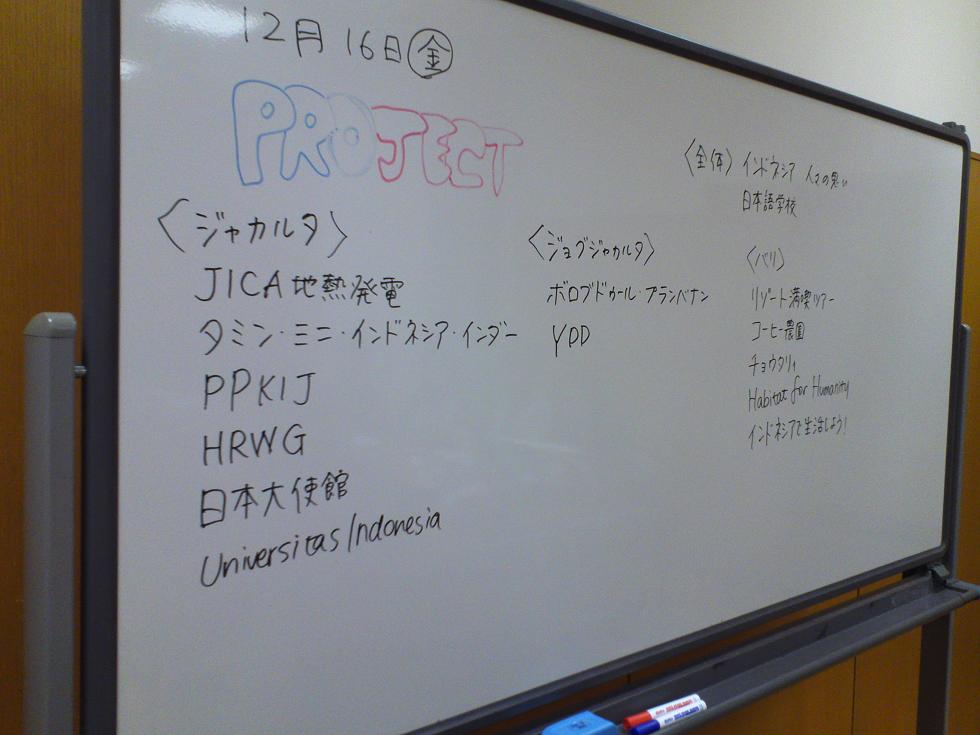 12月16日㊎
PROJECT
〈ジャカルタ〉
JICA地熱発電
タミン・ミニ・インドネシア・インダー
PPKIJ
HRWG
日本大使館
Universitas Indonesia
〈ジョグジャカルタ〉
ボロブドゥール・プランバナン
YDD
〈全体〉インドネシア 人々の思い
日本語学校
〈バリ〉
リゾート満喫ツアー
コーヒー農園
チョウタリィ
Habitat for Humanity
インドネシアで生活しよう!